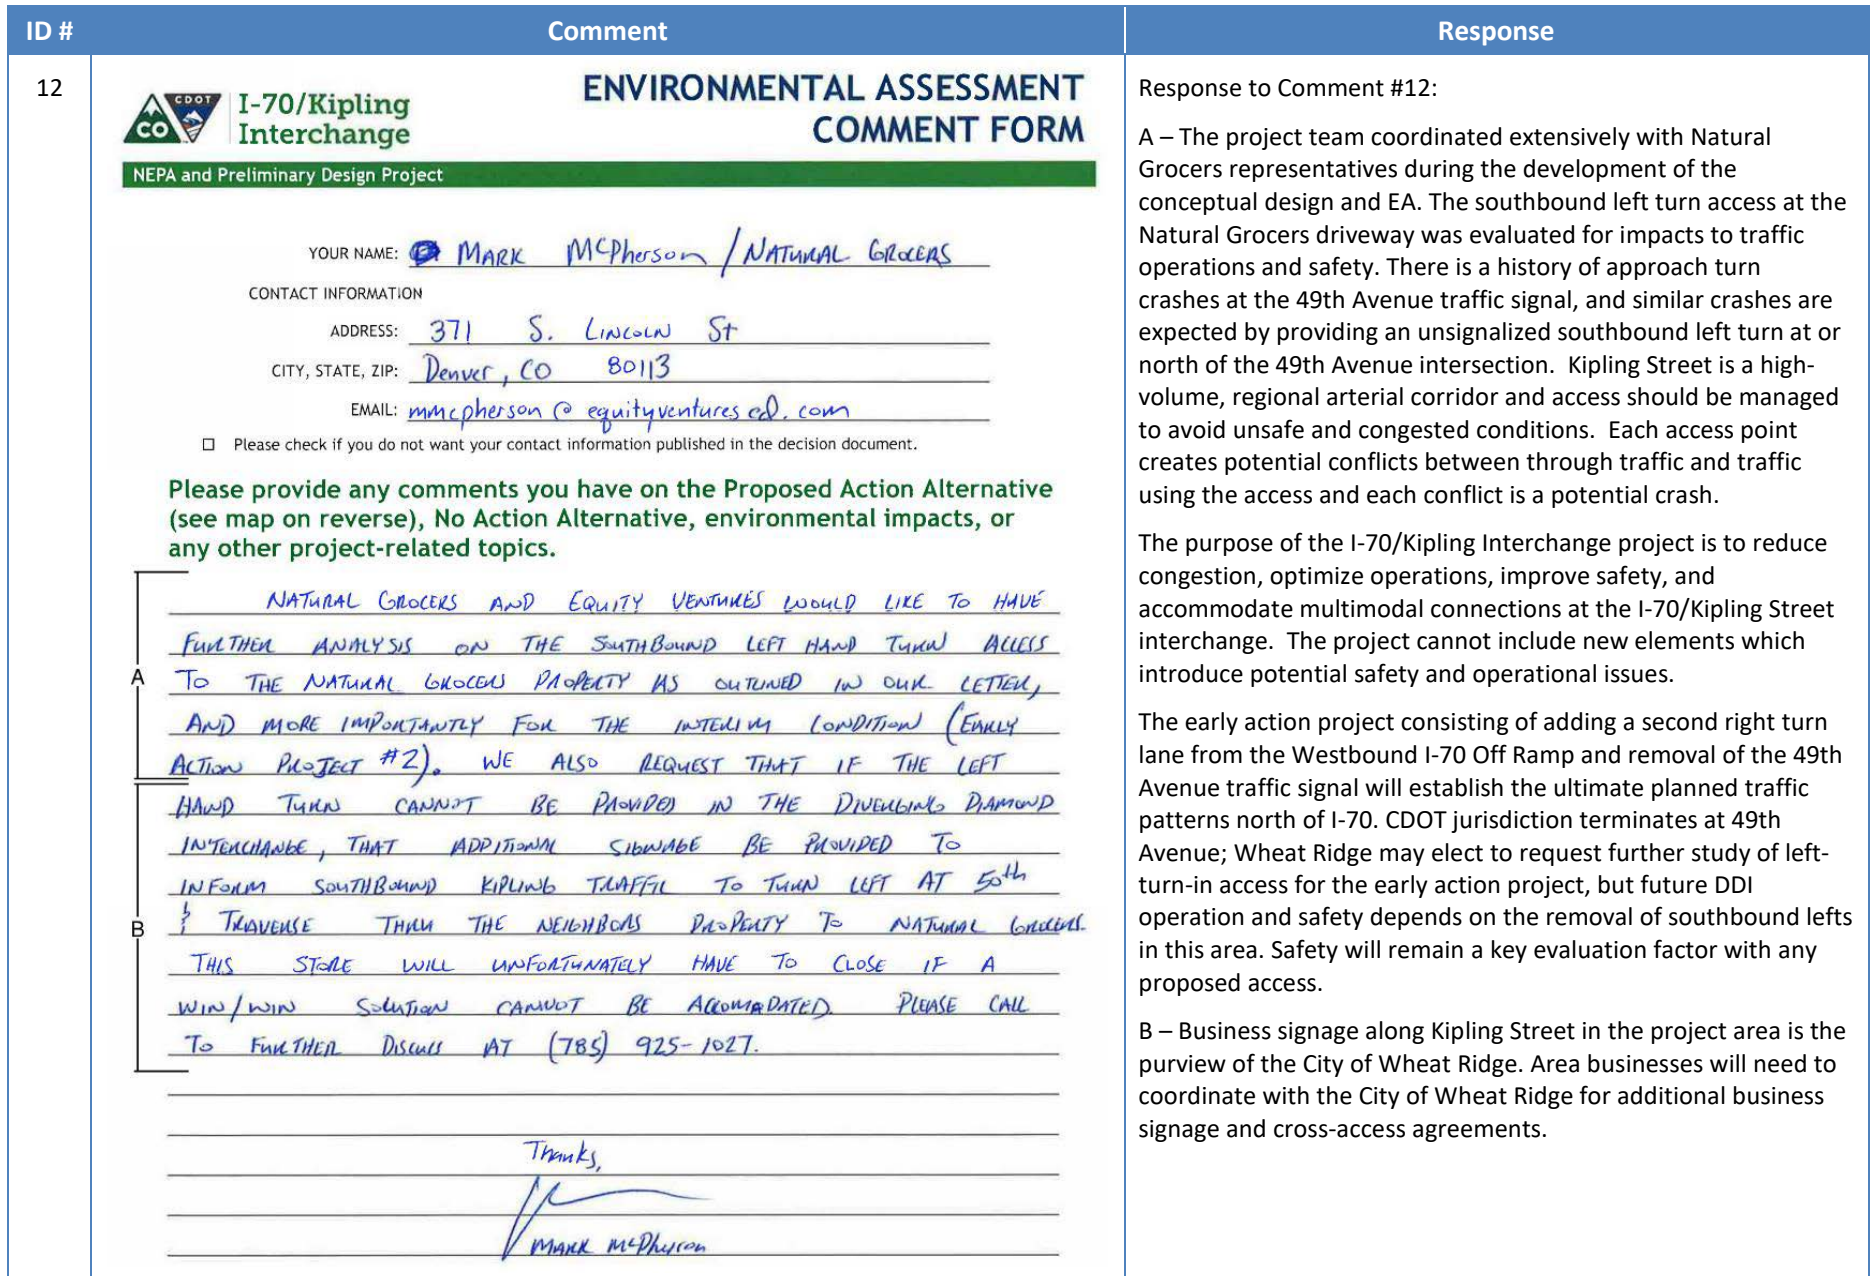 ID #
Comment
Response
12
CDOT
CO
I-70/Kipling
Interchange
ENVIRONMENTAL ASSESSMENT
COMMENT FORM
NEPA and Preliminary Design Project
YOUR NAME: MARK McPherson / NATURAL GROCERS
CONTACT INFORMATION
ADDRESS: 371 S. LINCOLN St
CITY, STATE, ZIP: Denver, CO 80113
EMAIL: mmcpherson@equityventures.com
☐ Please check if you do not want your contact information published in the decision document.
Please provide any comments you have on the Proposed Action Alternative
(see map on reverse), No Action Alternative, environmental impacts, or
any other project-related topics.
A
NATURAL GROCERS AND EQUITY VENTURES WOULD LIKE TO HAVE
FURTHER ANALYSIS ON THE SOUTHBOUND LEFT HAND TURN ACCESS
TO THE NATURAL GROCERS PROPERTY AS OUTLINED IN OUR LETTER,
AND MORE IMPORTANTLY FOR THE INTERIM CONDITION (EARLY
ACTION PROJECT #2). WE ALSO REQUEST THAT IF THE LEFT
B
HAND TURN CANNOT BE PROVIDED IN THE DIVERGING DIAMOND
INTERCHANGE, THAT ADDITIONAL SIGNAGE BE PROVIDED TO
INFORM SOUTHBOUND KIPLING TRAFFIC TO TURN LEFT AT 50th
& TRAVERSE THRU THE NEIGHBORS PROPERTY TO NATURAL GROCERS.
THIS STORE WILL UNFORTUNATELY HAVE TO CLOSE IF A
WIN/WIN SOLUTION CANNOT BE ACCOMODATED. PLEASE CALL
TO FURTHER DISCUSS AT (785) 925-1027.
Thanks,
MARK McPherson
Response to Comment #12:
A – The project team coordinated extensively with Natural
Grocers representatives during the development of the
conceptual design and EA. The southbound left turn access at the
Natural Grocers driveway was evaluated for impacts to traffic
operations and safety. There is a history of approach turn
crashes at the 49th Avenue traffic signal, and similar crashes are
expected by providing an unsignalized southbound left turn at or
north of the 49th Avenue intersection. Kipling Street is a high-
volume, regional arterial corridor and access should be managed
to avoid unsafe and congested conditions. Each access point
creates potential conflicts between through traffic and traffic
using the access and each conflict is a potential crash.
The purpose of the I-70/Kipling Interchange project is to reduce
congestion, optimize operations, improve safety, and
accommodate multimodal connections at the I-70/Kipling Street
interchange. The project cannot include new elements which
introduce potential safety and operational issues.
The early action project consisting of adding a second right turn
lane from the Westbound I-70 Off Ramp and removal of the 49th
Avenue traffic signal will establish the ultimate planned traffic
patterns north of I-70. CDOT jurisdiction terminates at 49th
Avenue; Wheat Ridge may elect to request further study of left-
turn-in access for the early action project, but future DDI
operation and safety depends on the removal of southbound lefts
in this area. Safety will remain a key evaluation factor with any
proposed access.
B – Business signage along Kipling Street in the project area is the
purview of the City of Wheat Ridge. Area businesses will need to
coordinate with the City of Wheat Ridge for additional business
signage and cross-access agreements.